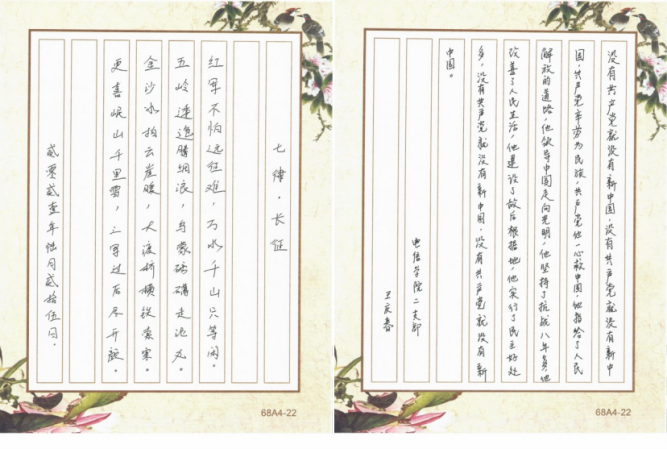 七律·长征
红军不怕远征难，万水千山只等闲。
五岭逶迤腾细浪，乌蒙磅礴走泥丸。
金沙水拍云崖暖，大渡桥横铁索寒。
更喜岷山千里雪，三军过后尽开颜。
贰零贰壹年陆月贰拾伍日。
68A4-22
没有共产党就没有新中国，没有共产党就没有新中
国，共产党辛劳为民族，共产党他一心救中国，他指给了人民
解放的道路，他领导中国走向光明，他坚持了抗战八年多，他
改善了人民生活，他建设了敌后根据地，他实行了民主好处
多，没有共产党就没有新中国，没有共产党就没有新
中国。
电信学院二支部
卫庆春
68A4-22